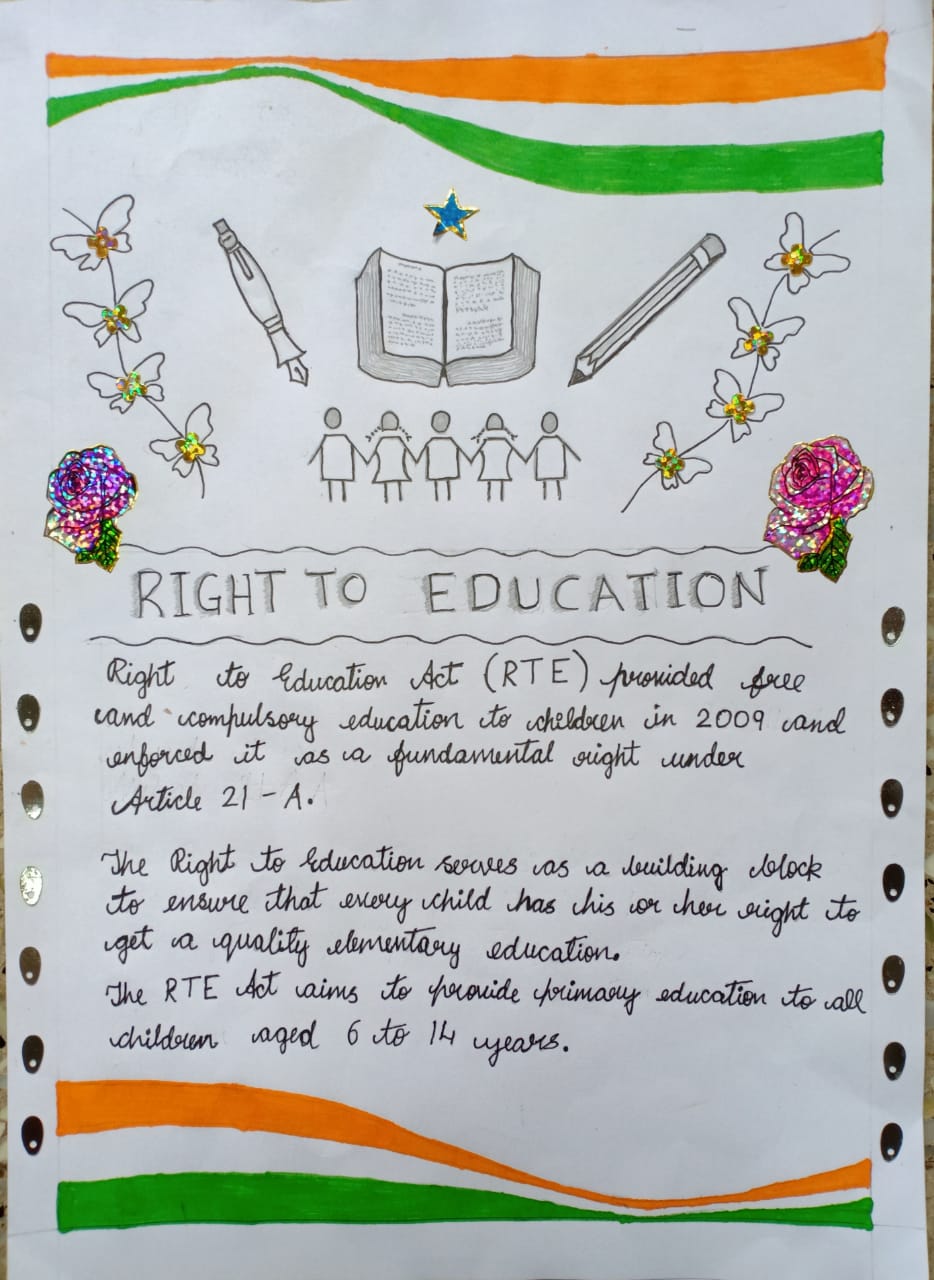 RIGHT TO EDUCATION
Right to Education Act (RTE) provided free
and compulsory education to children in 2009 and
enforced it as a fundamental right under
Article 21-A.
The Right to Education serves as a building block
to ensure that every child has his or her right to
get a quality elementary education.
The RTE Act aims to provide primary education to all
children aged 6 to 14 years.